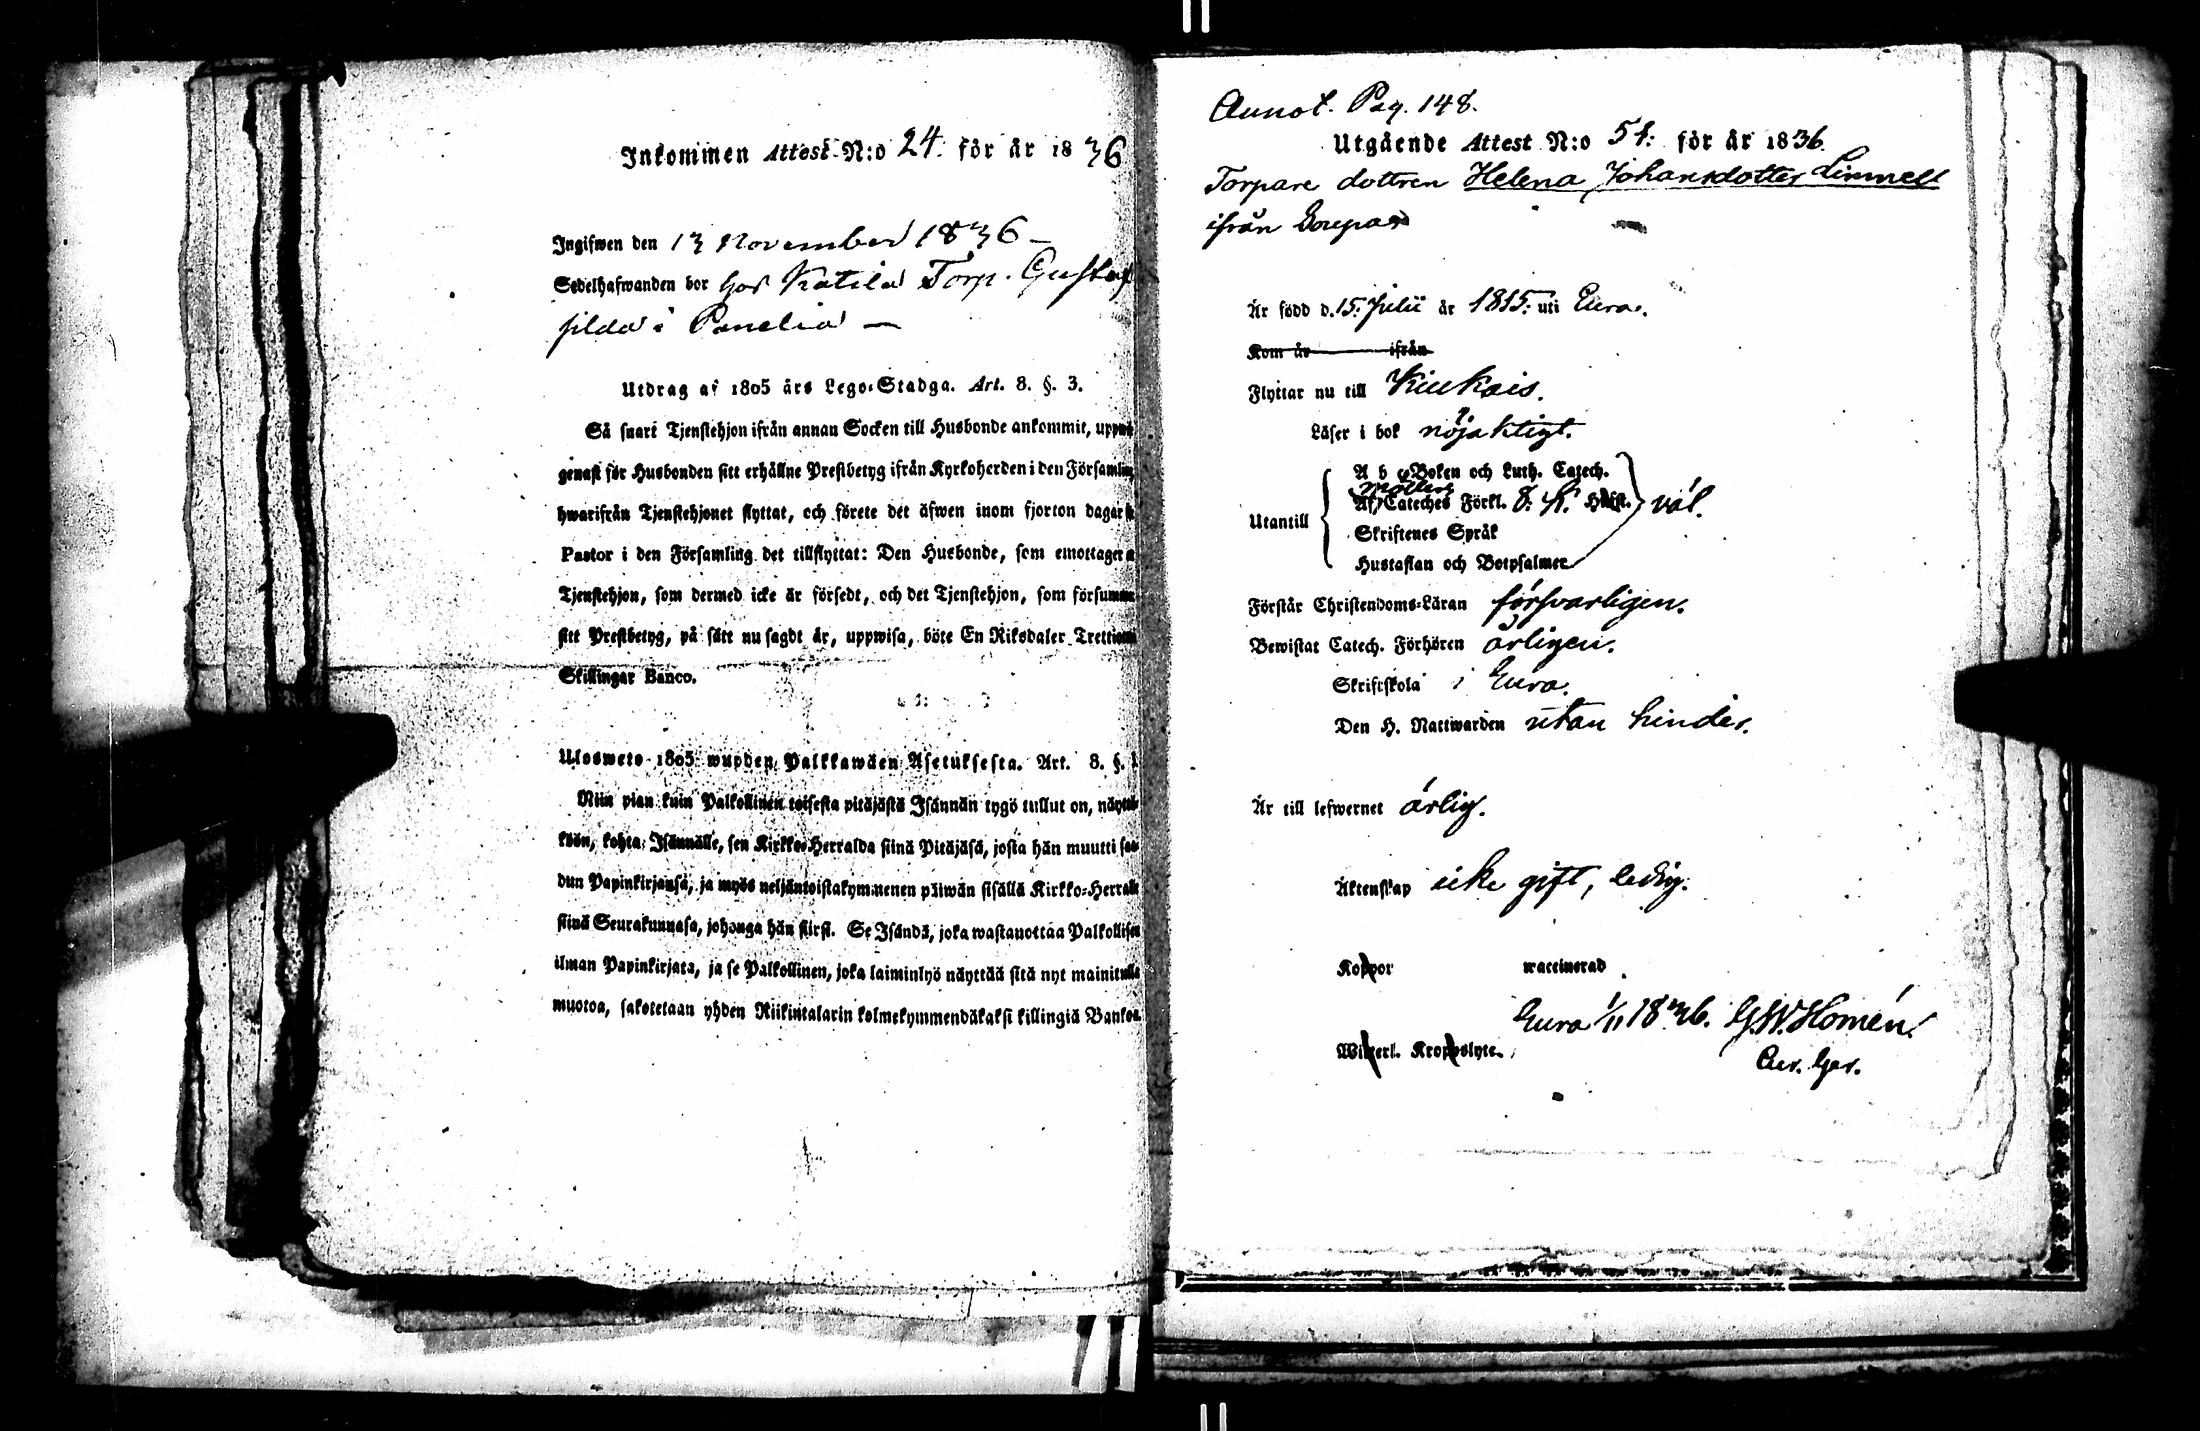 Inkommen Attest N:o 24. för år 1836
Ingifwen den 13 November 1836 –
Sedelhafwanden bor hos Katila Torp. Gustaf
i Panelia —
Utdrag af 1805 års Lego-Stadga. Art. 8. §. 3.
Så snart Tjenstehjon ifrån annan Socken till Husbonde ankommit,
genast för Husbonden sitt erhållne Prestbetyg ifrån Kyrkoherden i den
hwarifrån Tjenstehjonet flyttat, och förete det äfwen inom fjorton dagar
Pastor i den Församling det tillflyttat: Den Husbonde, som emottager
Tjenstehjon, som dermed icke är försedt, och det Tjenstehjon, som
sitt Prestbetyg, på sätt nu sagdt är, uppwisa, böte En Riksdaler
Skillingar Banco.
Ulosweto 1805 wuoden Palkkawäen Asetuksesta. Art. 8. §.
Niin pian kuin Palkollinen toisesta pitäjästä Isännän tygö tullut on,
köön, kohta Isännälle, sen Kirkko-Herralda siinä Pitäjäsä, josta hän muutti
dun Papinkirjansa, ja myös neljäntoistakymmenen päiwän sisällä
siinä Seurakunnasa, johonga hän siirsi. Se Isändä, joka wastanottaa
ilman Papinkirjata, ja se Palkollinen, joka laiminlyö näyttää sitä nyt
muotoa, sakotetaan yhden Riikintalarin kolmekymmendäkaksi killingiä
Annot. Pag. 148.
Utgående Attest N:o 51. för år 1836.
Torpare dottren Helena Johansdotter Linnell
ifrån
Är född d. 15. Julii år 1815. uti Eura.
Kom år ifrån
Flyttar nu till Kiukais.
Läser i bok nöjaktigt.
A b c Boken och Luth. Catech.
Möllers
Af Cateches Förkl.
Utantill väl.
Skriftenes Språk
Hustaflan och Botpsalmer
Förstår Christendoms-Läran försvarligen.
Bewistat Catech. Förhören årligen.
Skriftskola i Eura.
Den H. Nattwarden utan hinder.
Är till lefwernet ärlig.
Äktenskap icke gift, ledig.
Koppor waccinerad
Eura 1/11 1836. G.W. Homén.
Wiserl. Kroppslyte.